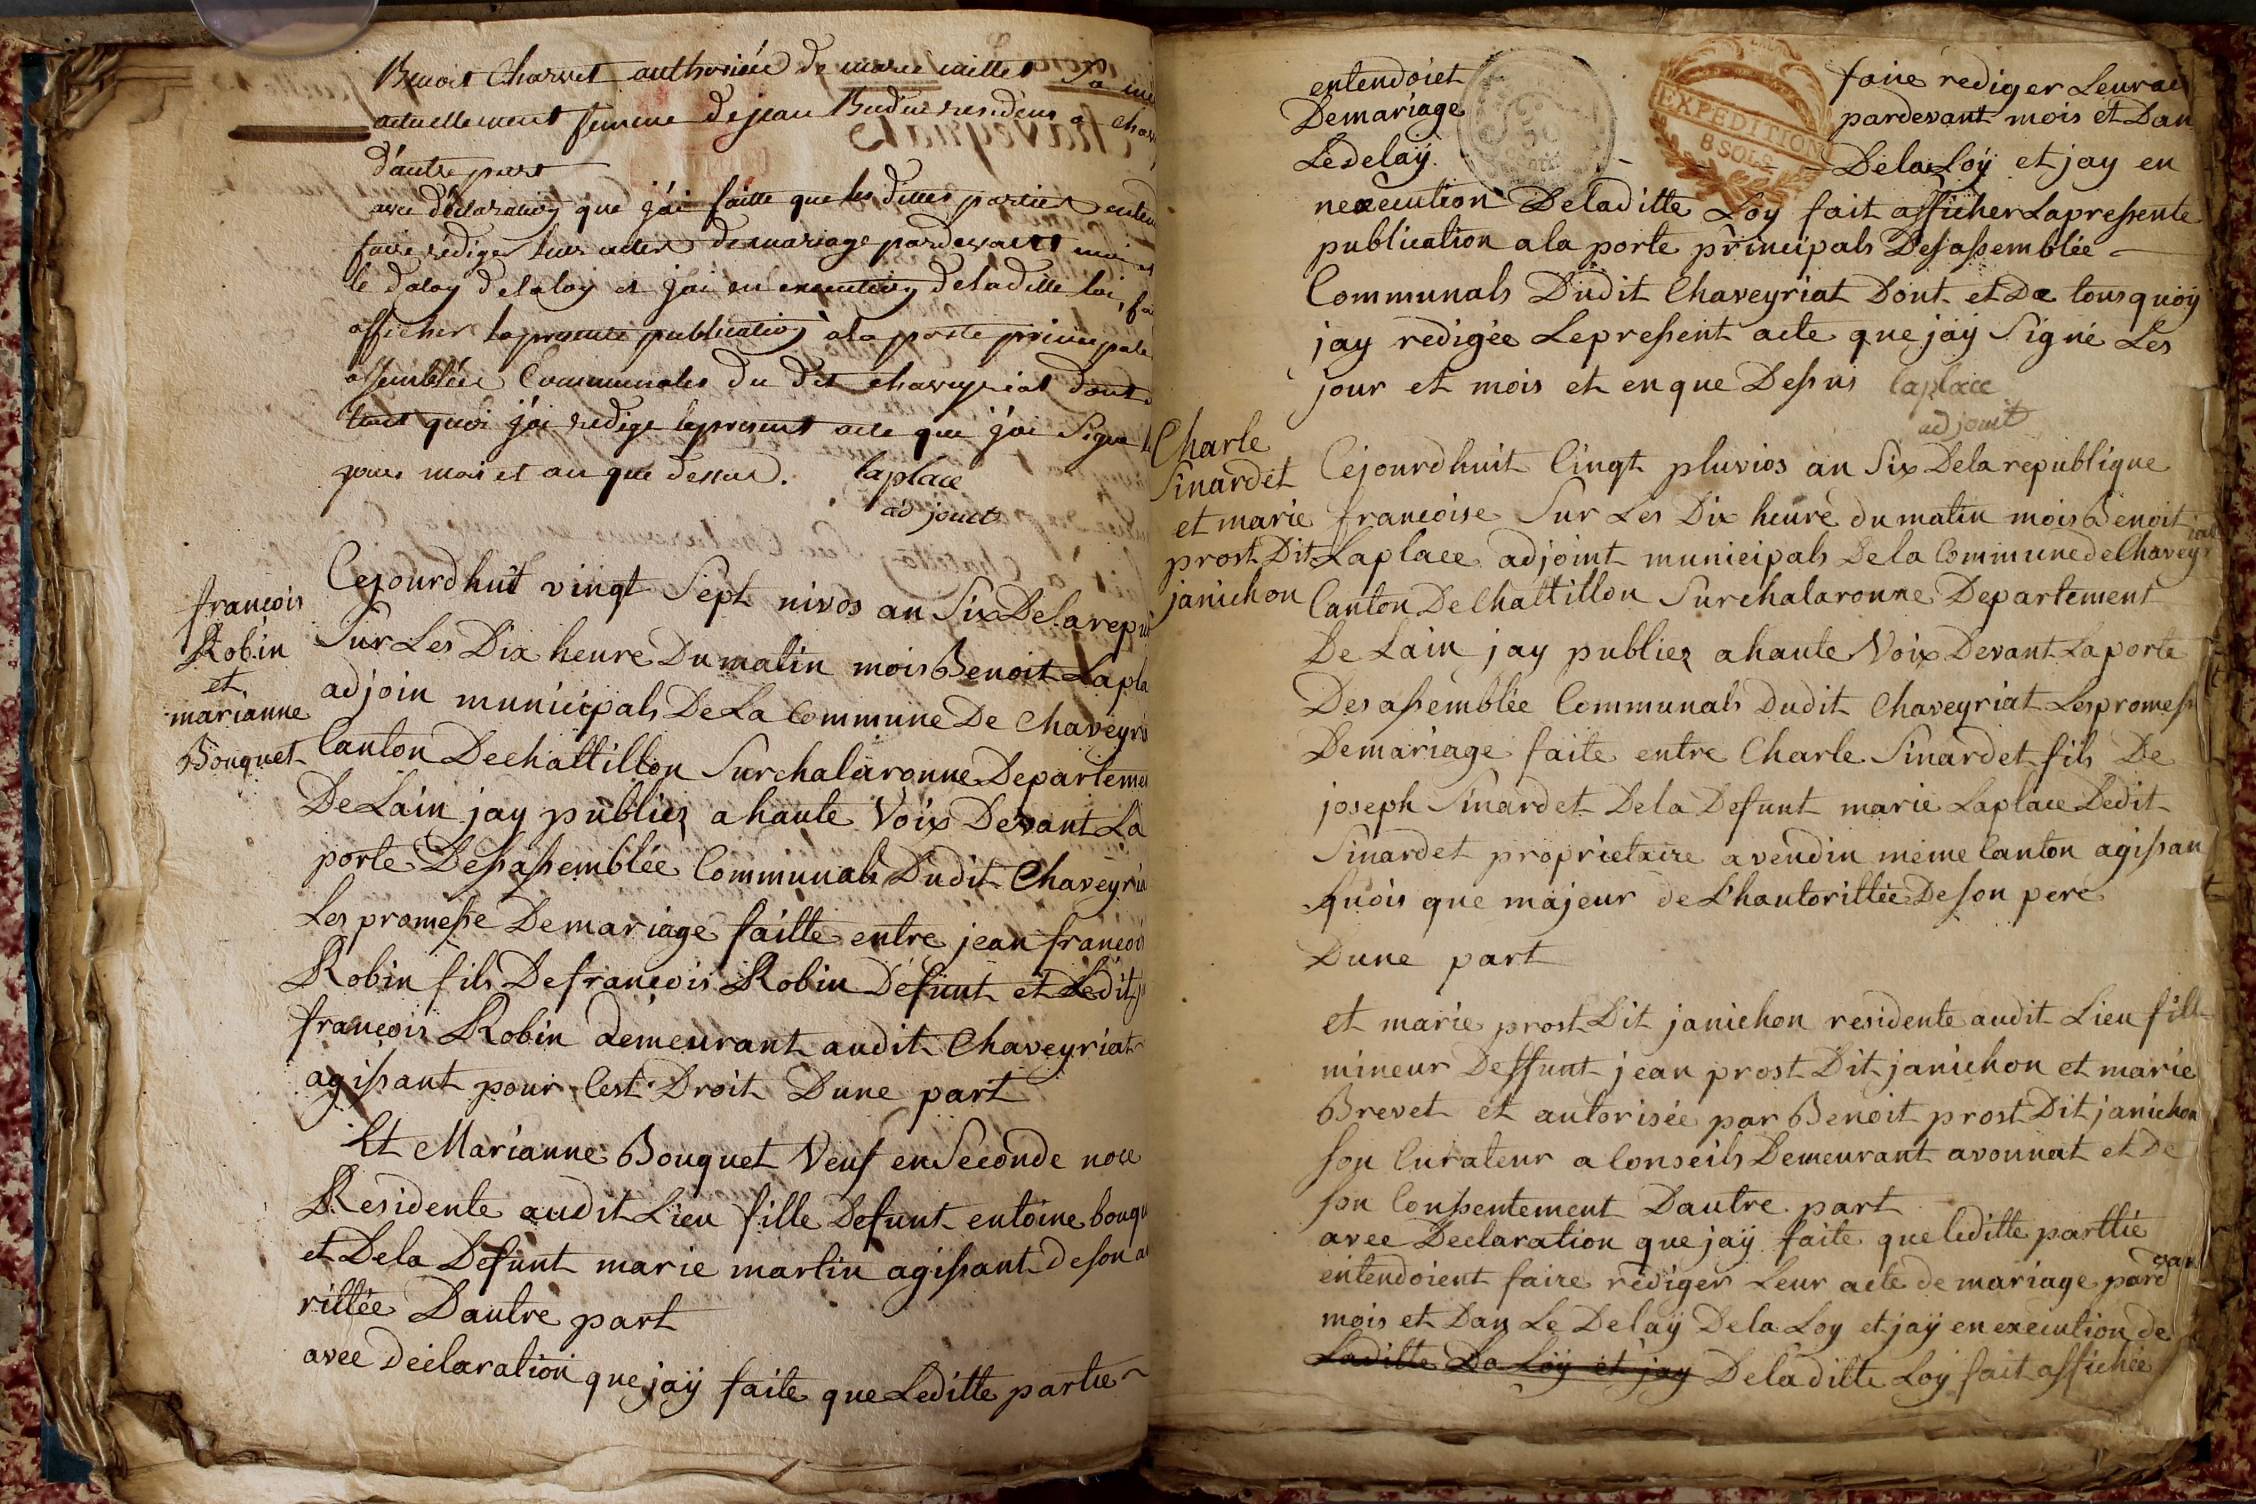 Benoit Charvet authorisée de marie millet sa mere
actuellement femme de jean Budin residens a Chav
d'autre part
avec déclaration que j'ai faitte que les dittes parties enten
faire rédiger leur actes de mariage pardevant moi et
le delay de la loy et j'ai en execution de la ditte loi, fa
afficher la presente publication a la porte principale
assemblée Communales du dit chaveyriat dont
tout quoi j'ai redige le present acte que j'ai Signe l
jour mois et an que dessus. laplace
adjouet
françois
Robin
et
marianne
Bouquet
Cejourdhuit vingt Sept nivos an Six De la repu
Sur Les Dix heure Du matin mois Benoit Lapla
adjoin municipals De La Commune De Chaveyri
Canton De chattillon Surchalaronne Departeme
De Lain jay publiez a haute Voix Devant La
porte Desassemblée Communals Dudit Chaveyria
Les promesse De mariage faitte entre jean françois
Robin fils De françois Robin Défunt et Ledit j
françois Robin demeurant audit Chaveyriat
agissant pour Cest Droit Dune part
Et Marianne Bouquet Veuf en Seconde noce
Residente audit Lieu fille Defunt entoine bouqu
et De la Defunt marie martin agissant de son au
rittée Dautre part
avec declaration que jaÿ faite que Leditte partie
entendoiet faire rediger Leur ac
De mariage pardevant mois et Dan
Le delaÿ De la Loÿ et jay en
nexecution De laditte Loy fait afficher La pressente
publication a la porte principals Desassemblée
Communals Dudit Chaveyriat Dont et De tous quoÿ
jay redigée Le pressent acte que jaÿ Signé Les
jour et mois et en que Dessus laplace
adjouit
EXPEDITION
8 SOLS
Charle
Sinardet
et marie
prost Dit
janichon
Cejourdhuit Vingt pluvios an Six De la republique
françoise Sur Les Dix heure du matin mois Benoit
Laplace adjoint municipals De la Commune de Chaveyriat
Canton De Chattillon Surchalaronne Departement
De Lain jay publiez a haute Voix Devant La porte
Des assemblée Communals Dudit Chaveyriat Les promess
De mariage faite entre Charle Sinardet fils De
joseph Sinardet De la Defunt marie Laplace Ledit
Sinardet proprietaire a vendin même Canton agissan
quois que majeur de L'hautorittée De son pere
Dune part
et marie prost Dit janichon residente audit Lieu fille
mineur Deffunt jean prost Dit janichon et marie
Brevet et autorisée par Benoit prost Dit janichon
son Curateur a Conseils Demeurant a vonnat et De
son Consentement Dautre part
avec Declaration que jaÿ faite que leditte parttie
entendoient faire rédiger Leur acte de mariage pardvan
mois et Dan Le Delaÿ De la Loy et jaÿ en execution de
Laditte La Loÿ et jay De laditte Loy fait affichée